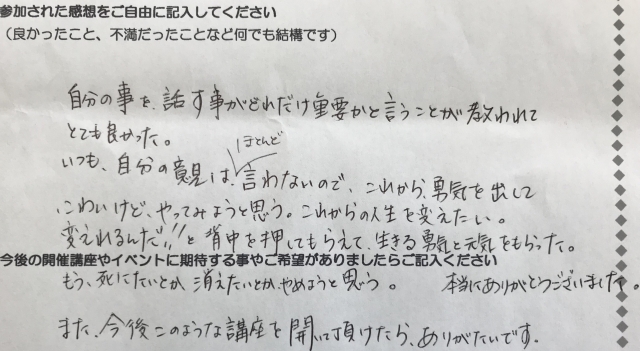 参加された感想をご自由に記入してください
（良かったこと、不満だったことなど何でも結構です）
自分の事を、話す事がどれだけ重要かと言うことが教われて
とても良かった。
ほとんど
いつも、自分の意見は、言わないので、これから、勇気を出して
こわいけど、やってみようと思う。これからの人生を変えたい。
変えれるんだ!!と背中を押してもらえて、生きる勇気と元気をもらった。
今後の開催講座やイベントに期待する事やご希望がありましたらご記入ください
もう、死にたいとか、消えたいとか、やめようと思う。 本当にありがとうございました。
また、今後このような講座を開いて頂けたら、ありがたいです。